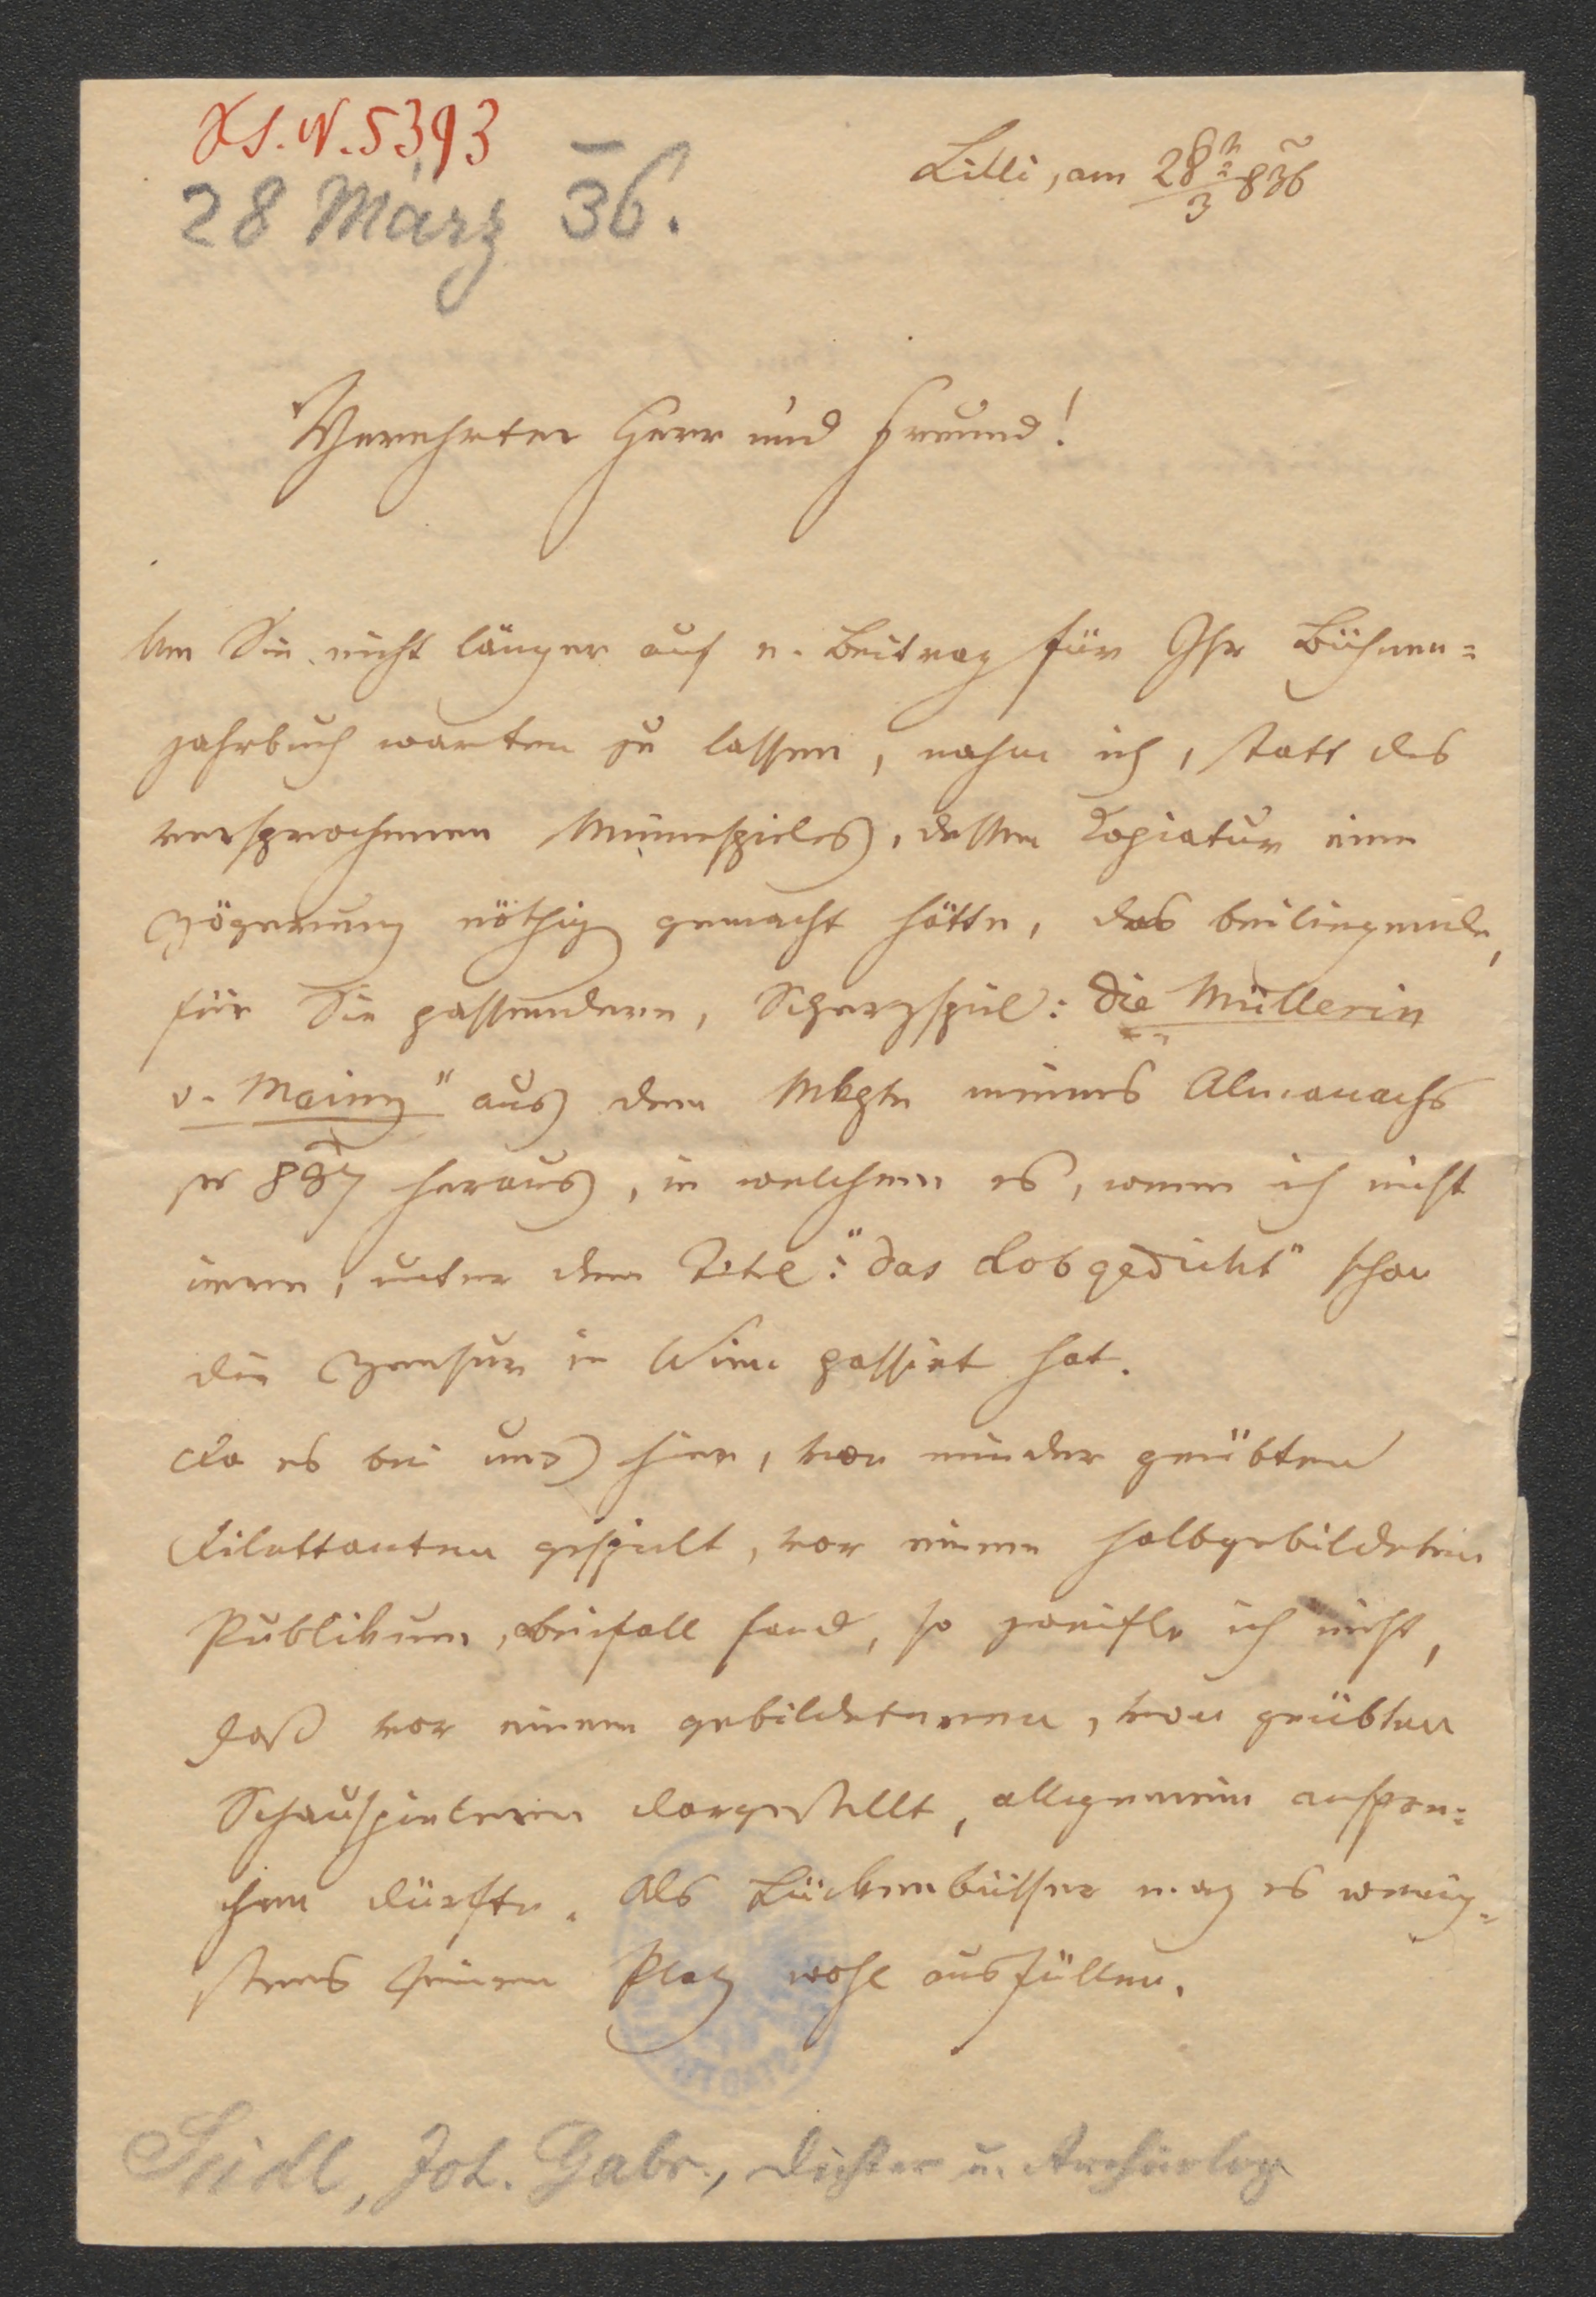 H.I.N. 5393
28 März 36.
Cilli, am 28/3 836
Verehrter Herr und Freund!
Um Sie nicht länger auf e. Beitrag für Ihr Bühnen=
jahrbuch warten zu lassen, nahm ich, statt des
versprochenen Minnespieles, dessen Copiatur eine
Zögerung nöthig gemacht hätte, das beiliegende,
für Sie passendere, Scherzspiel: die Müllerin
v. Mainz" aus dem Mskpte meines Almanachs
pr 837 heraus, in welchem es, wenn ich nicht
irre, unter dem Titel: "das Lobgedicht" schon
die Zensur in Wien passirt hat.
Da es bei uns hier, von minder geübten
Dilettanten gespielt, vor einem halbgebildeten
Publikum, Beifall fand, so zweifle ich nicht,
daß vor einem gebildeteren, von geübten
Schauspielern dargestellt, allgemein anspre=
chen dürfte. Als Lückenbüsser mag es wenig=
stens seinen Platz wohl ausfüllen.
Seidl, Joh. Gabr., Dichter u. Archäolog